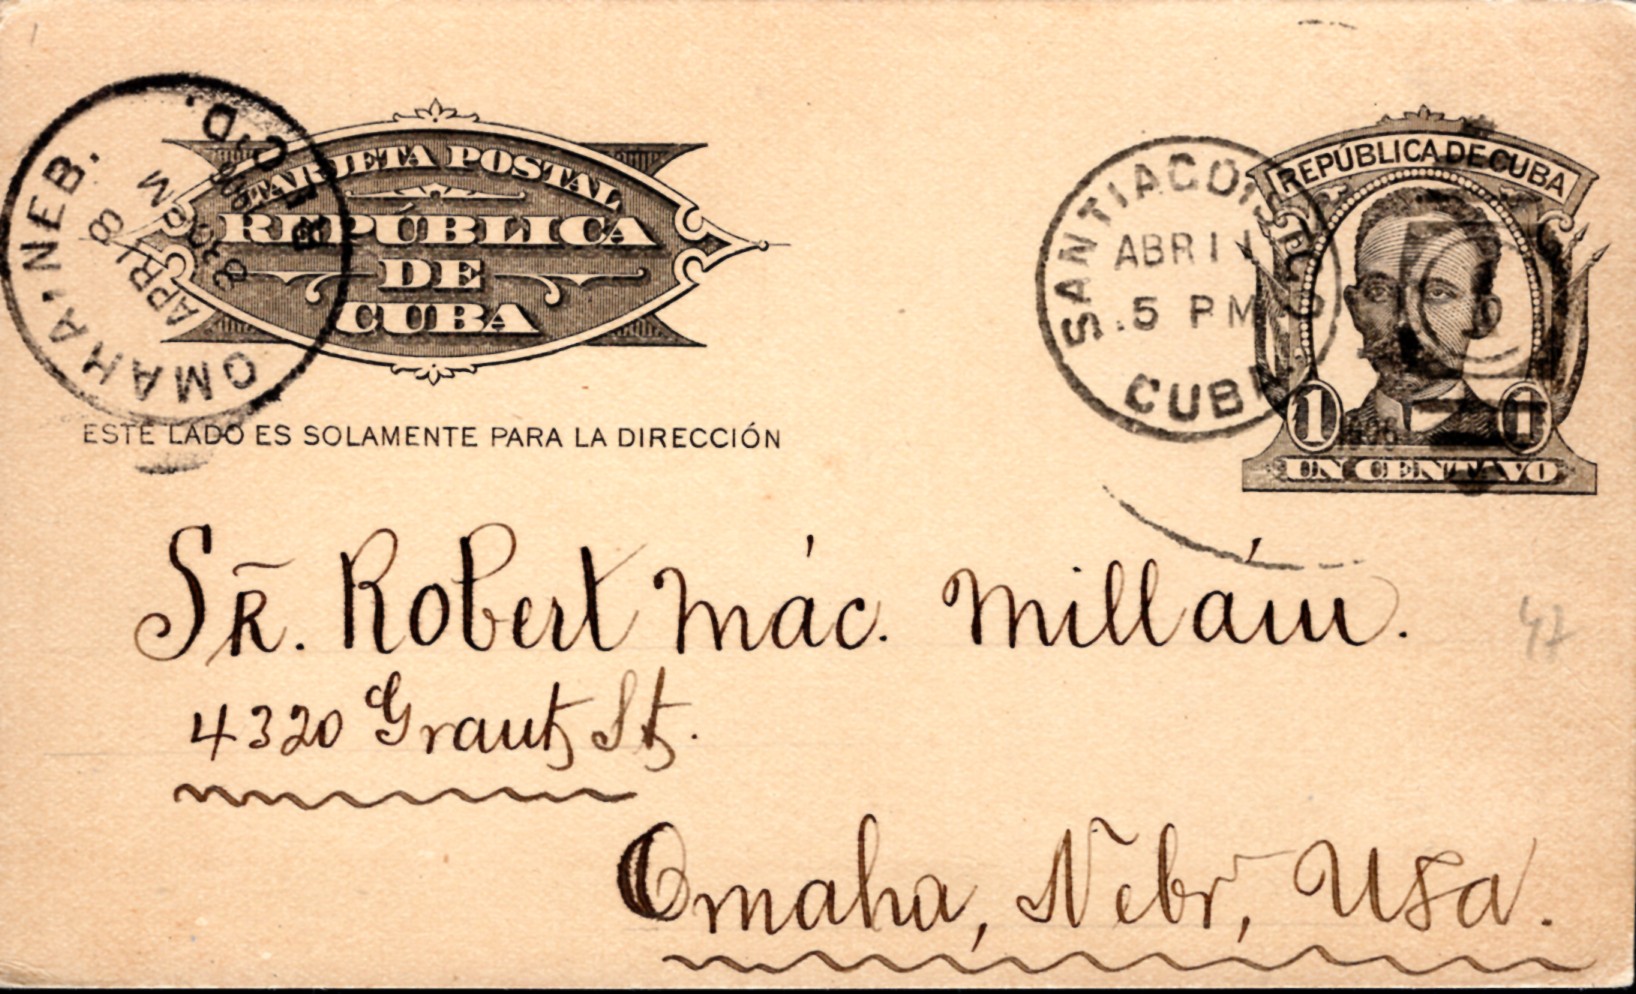 TARJETA POSTAL
REPÚBLICA
DE
CUBA
ESTE LADO ES SOLAMENTE PARA LA DIRECCIÓN
OMAHA, NEB.
APR 18
830 PM
REC'D.
SANTIAGO
ABR 11
5 PM
CUBA
REPÚBLICA DE CUBA
1 1
UN CENTAVO
Sr. Robert Mác. Millám.
4320 Grant St.
Omaha, Nebr, Usa.
47